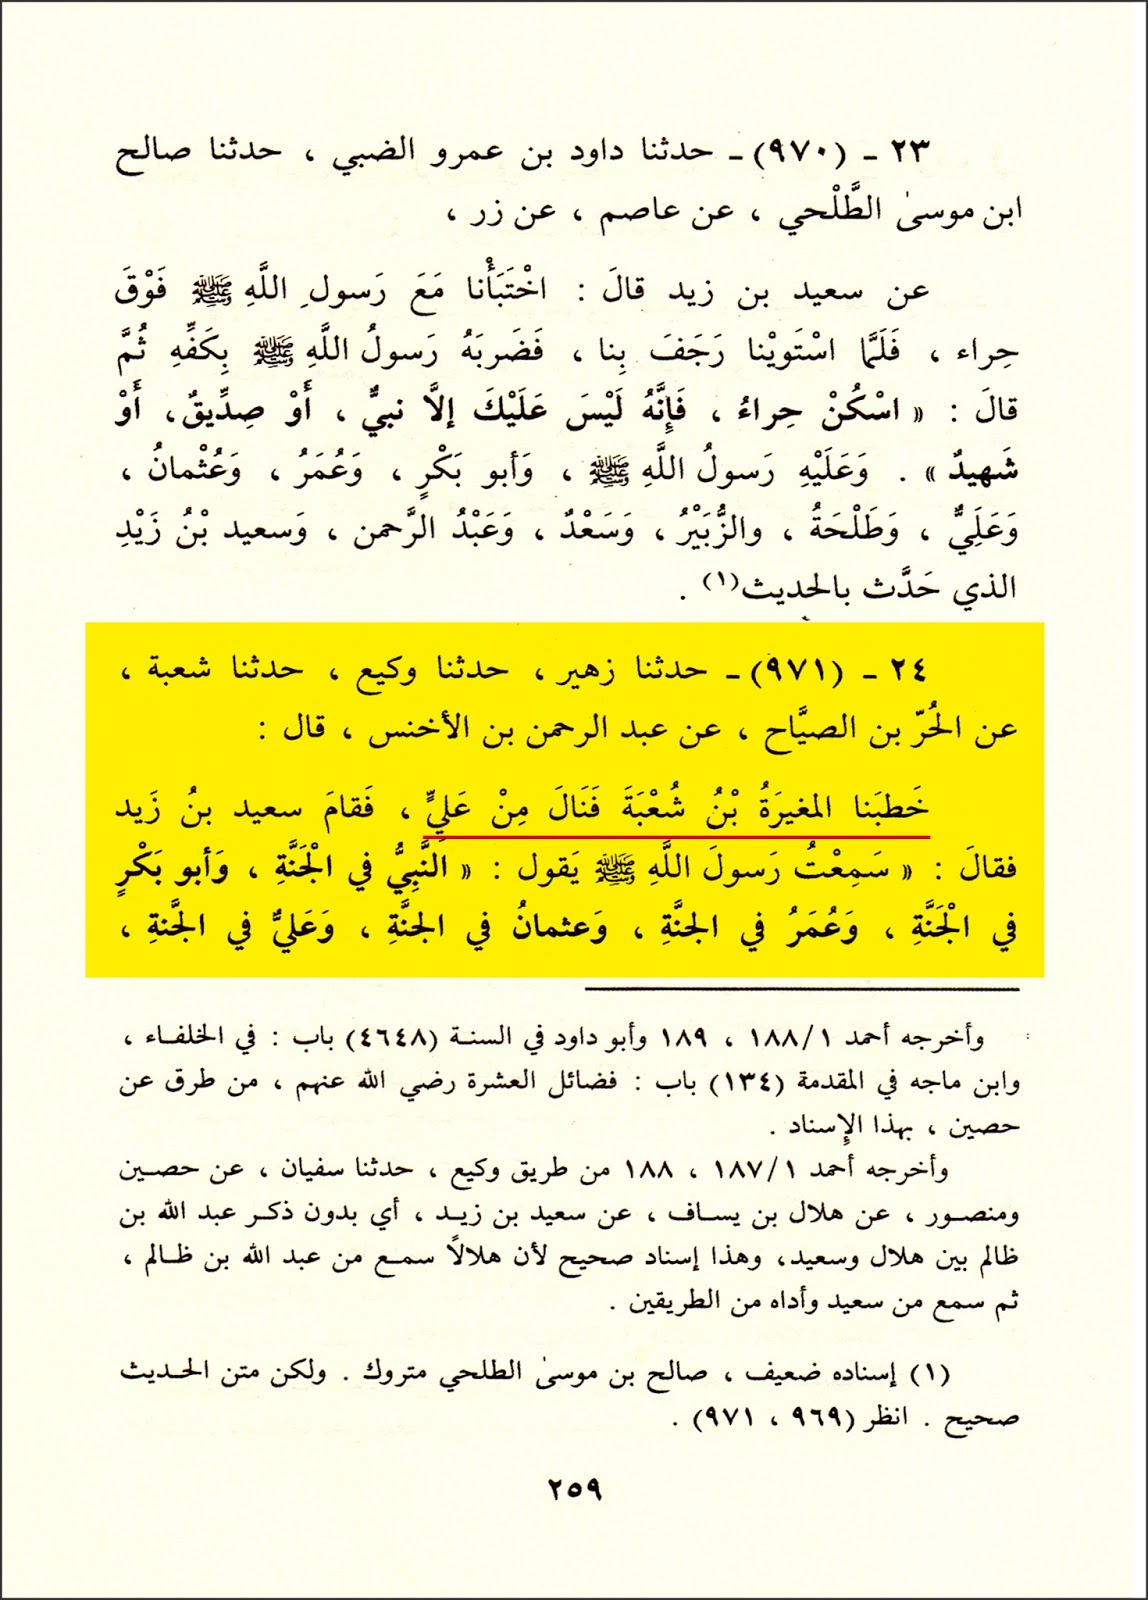 ٢٣ ـ (٩٧٠) ـ حدثنا داود بن عمرو الضبي ، حدثنا صالح
ابن موسىٰ الطَّلْحي ، عن عاصم ، عن زر ،
عن سعيد بن زيد قالَ : اخْتَبَأْنا مَعَ رَسولِ اللَّهِ ﷺ فَوْقَ
حِراء ، فَلَمَّا اسْتَوَيْنا رَجَفَ بِنا ، فَضَربَهُ رَسولُ اللَّهِ ﷺ بِكَفِّهِ ثُمَّ
قالَ : « اسْكُنْ حِراءُ ، فَإِنَّهُ لَيْسَ عَلَيْكَ إلاَّ نبيٌّ ، أَوْ صِدِّيقٌ، أَوْ
شَهيدٌ » . وَعَلَيْهِ رَسولُ اللَّهِ ﷺ ، وَأبو بَكْرٍ ، وَعُمَرُ ، وَعُثْمانُ ،
وَعَلِيٌّ ، وَطَلْحَةُ ، والزُّبَيْرُ ، وَسَعْدٌ ، وَعَبْدُ الرَّحمن ، وَسعيد بْنُ زَيْدِ
الذي حَدَّث بالحديث(١) .
٢٤ ـ (٩٧١) ـ حدثنا زهير ، حدثنا وكيع ، حدثنا شعبة ،
عن الحُرّ بن الصيَّاح ، عن عبد الرحمن بن الأخنس ، قال :
خَطبَنا المغيرَةُ بْنُ شُعْبَةَ فَنَالَ مِنْ عَلِيٍّ ، فَقامَ سعيد بنُ زَيد
فقالَ : « سَمِعْتُ رَسولَ اللَّهِ ﷺ يَقول : « النَّبِيُّ في الْجَنَّةِ ، وَأبو بَكْرٍ
في الْجَنَّةِ ، وَعُمَرُ في الجنَّةِ ، وَعثمانُ في الجنَّةِ ، وَعَليٌّ في الجَّنةِ ،
وأخرجه أحمد ١/ ١٨٨ ، ١٨٩ وأبو داود في السنـة (٤٦٤٨) باب : في الخلفـاء ،
وابن ماجه في المقدمة (١٣٤) باب : فضائل العشرة رضي الله عنهم ، من طرق عن
حصين ، بهذا الإِسناد .
وأخرجه أحمد ١/ ١٨٧ ، ١٨٨ من طريق وكيع ، حدثنا سفيان ، عن حصـين
ومنصـور ، عن هلال بن يسـاف ، عن سعيد بن زيـد ، أي بدون ذكـر عبد الله بن
ظالم بين هلال وسعيد، وهذا إسناد صحيح لأن هلالًا سمـع من عبد الله بن ظـالم ،
ثم سمع من سعيد وأداه من الطريقين .
(١) إسناده ضعيف ، صالح بن موسىٰ الطلحي متروك . ولكن متن الحـديث
صحيح . انظر (٩٦٩ ، ٩٧١) .
٢٥٩